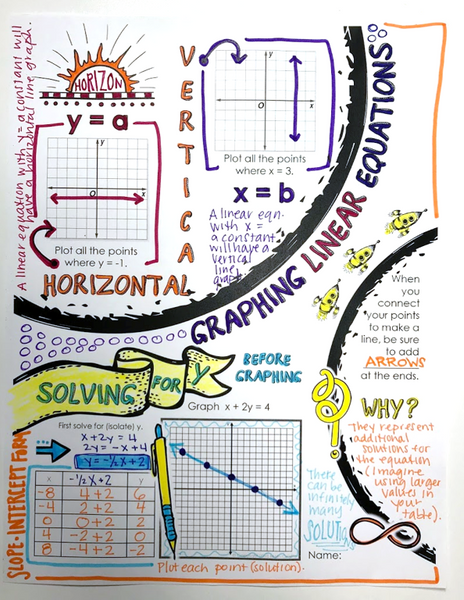 A linear equation with y = a constant will
have a horizontal line graph.
HORIZON
y = a
y
x
O
Plot all the points
where y = -1.
HORIZONTAL
VERTICAL
y
x
O
Plot all the points
where x = 3.
x = b
A linear eqn.
with x =
a constant
will have a
vertical
line
graph.
GRAPHING LINEAR EQUATIONS
When
you
connect
your points
to make a
line, be sure
to add
ARROWS
at the ends.
WHY?
They represent
additional
solutions for
the equation
(Imagine
using larger
values in
your
table).
SOLVING FOR Y
BEFORE
GRAPHING
Graph x + 2y = 4
First solve for (isolate) y.
x + 2y = 4
2y = -x + 4
y = -½x + 2
SLOPE-INTERCEPT FORM
x -½x + 2 y
-8 4+2 6
-4 2+2 4
0 0+2 2
4 -2+2 0
8 -4+2 -2
Plot each point (solution).
There
can be
infinitely
many
SOLUTIONS
Name: